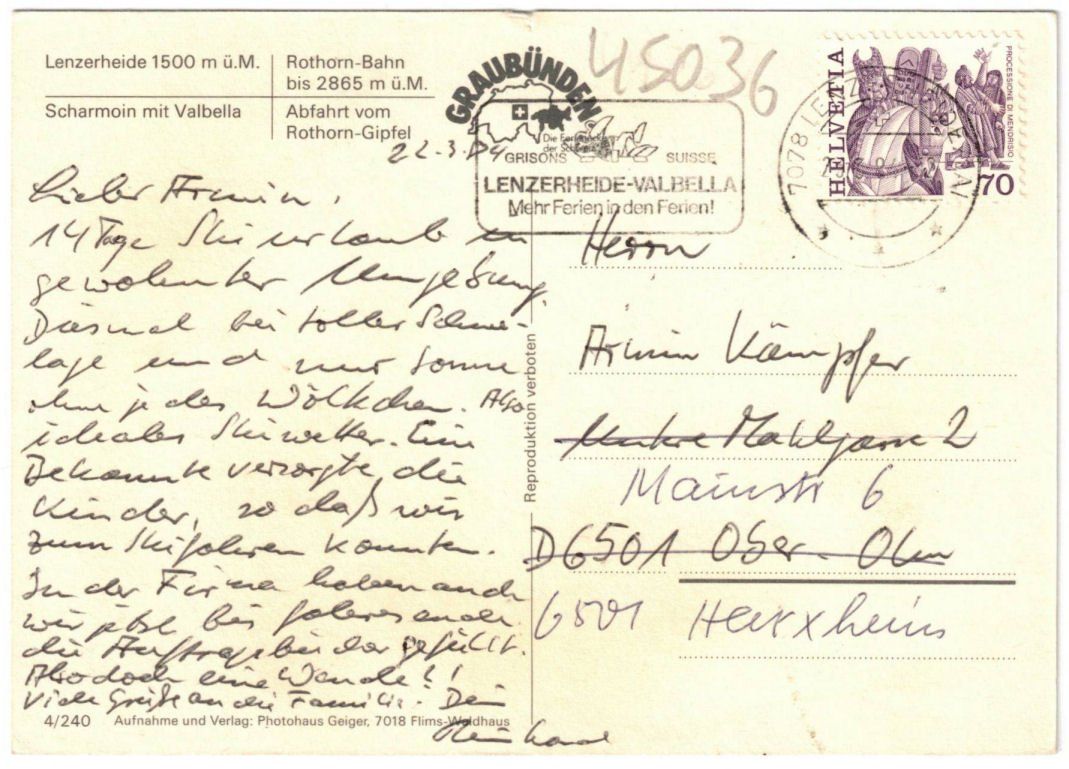 Lenzerheide 1500 m ü.M.
Scharmoin mit Valbella
Rothorn-Bahn
bis 2865 m ü.M.
Abfahrt vom
Rothorn-Gipfel
22.3.84
Lieber Armin,
14 Tage Skiurlaub in
gewohnter Umgebung
Diesmal bei toller Schnee-
lage und nur Sonne
ohne jedes Wölkchen. Also
ideales Skiwetter. Eine
Bekannte versorgte die
Kinder, so daß wir
zum Skifahren konnten.
In der Firma haben auch
wir jetzt bis Jahresende
die Auftragsbücher gefüllt.
Also doch eine Wende!!
Viele Grüße an die Familie. Dein
Reinhard
4/240 Aufnahme und Verlag: Photohaus Geiger, 7018 Flims-Waldhaus
Reproduktion verboten
45036
GRAUBÜNDEN
Die Ferienecke
der Schweiz
GRISONS SUISSE
LENZERHEIDE-VALBELLA
Mehr Ferien in den Ferien!
7078
HELVETIA
PROCESSIONE DI MENDRISIO
70
Herrn
Armin Kämpfer
Untere Mahlgasse 2
Mainstr 6
D6501 Ober-Olm
6501 Harxheim